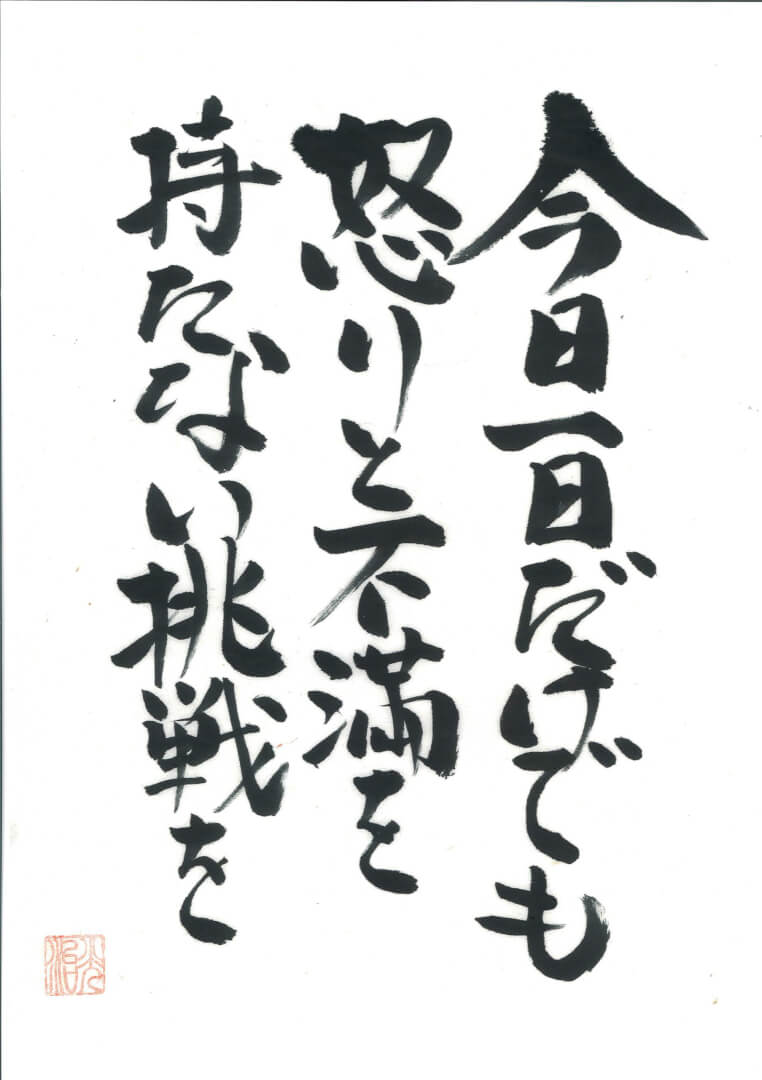 今日一日だけでも
怒りと不満を
持たない挑戦を